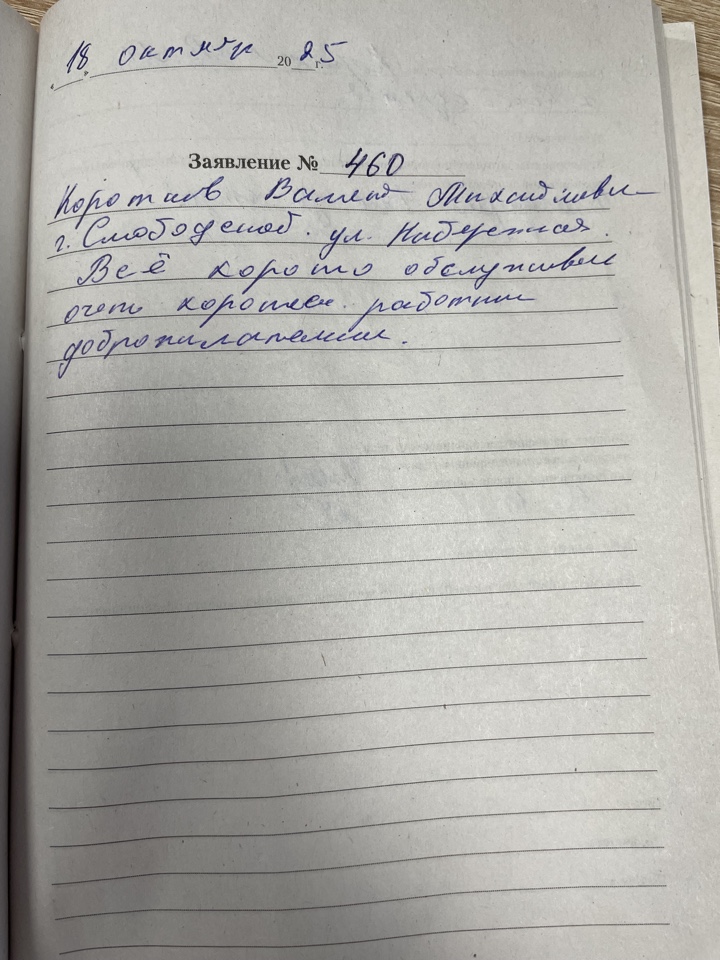 "18" октяр 2025 г.
Заявление № 460
Коротив Вален Михайлови
г. Слободской. ул. Набережная.
Всё хорошо обслуживан
очень хорошее. работни
доброжилателни.